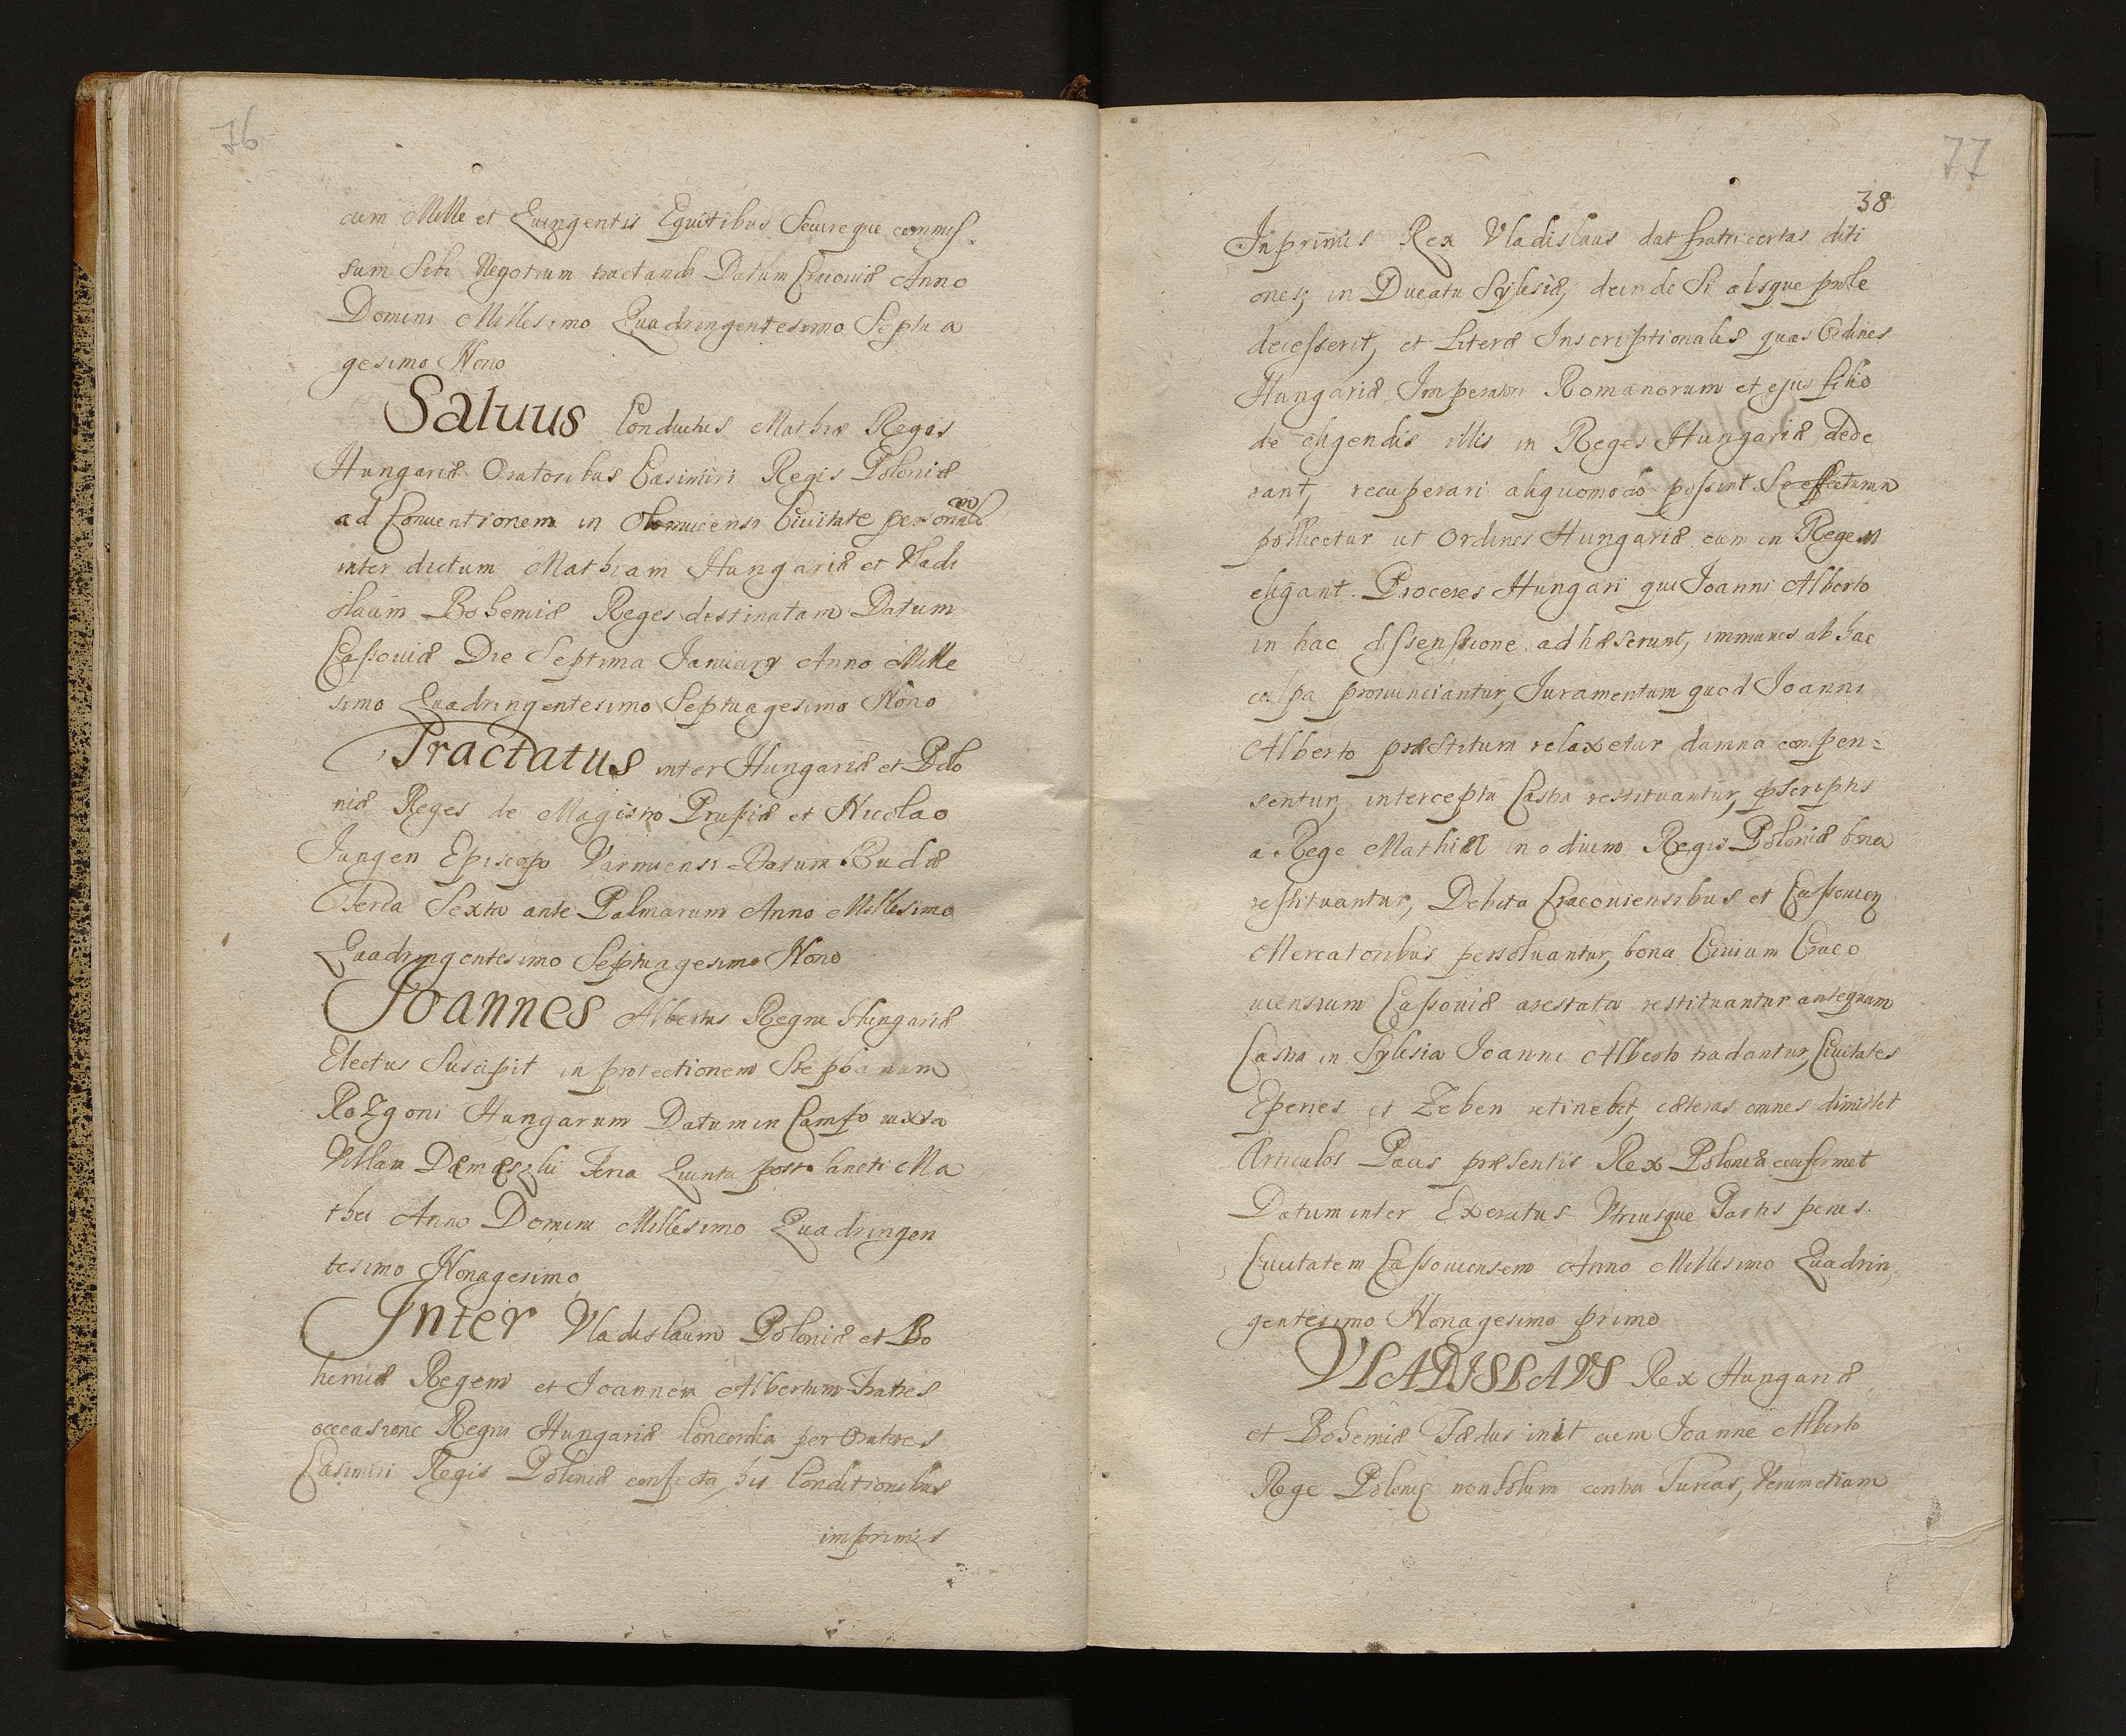 76
cum Mille et Quingentis Equitibus Secureque commis
sum Sibi Negotium tractandi Datum Cracoviæ Anno
Domini Millesimo Quadringentesimo Septua
gesimo Nono
Saluus Conductus Mathiæ Regis
Hungariæ Oratoribus Casimiri Regis Poloniæ
ad Conventionem in Olomucensi Civitate personalem
inter dictum Mathiam Hungariæ et Vladi
slaum Bohemiæ Reges destinatam Datum
Cassoviæ Die Septima January Anno Mille
simo Quadringentesimo Septuagesimo Nono
Tractatus inter Hungariæ et Polo
niæ Reges de Magistro Prussiæ et Nicolao
Tungen Episcopo Varmiensi Datum Budæ
Feria Sexta ante Palmarum Anno Millesimo
Quadringentesimo Septuagesimo Nono
Joannes Albertus Regni Hungariæ
Electus Suscipit in protectionem Stephanum
Rozgoni Hungarum Datum in Campo iuxta
Villam Feria Quinta post Sancti Ma
thei Anno Domini Millesimo Quadringen
tesimo Nonagesimo
Inter Vladislaum Poloniæ et Bo
hemiæ Regem et Joannem Albertum Fratres
occasione Regni Hungariæ Concordia per Oratores
Casimiri Regis Poloniæ confecta, his Conditionibus
imprimis
77
38
Inprimis Rex Vladislaus dat fratri certas diti
ones, in Ducatu Sylesiæ, deinde Si absque prole
decesserit, et Literæ Inscriptionales quas Ordines
Hungariæ Imperatori Romanorum et ejus filio
de eligendis illis in Reges Hungariæ dede
rant, recuperari aliquomodo possint Se effecturum
pollicetur ut Ordines Hungariæ eum in Regem
eligant. Proceres Hungari qui Joanni Alberto
in hac dissensione adhæserunt, immunes ab hac
culpa pronunciantur, Juramentum quod Joanni
Alberto præstitum relaxetur damna compen=
sentur, intercepta Castra restituantur, pscriptis
a Rege Mathia in odium Regis Poloniæ bona
restituantur, Debita Cracoviensibus et Cassovien
Mercatoribus persoluantur, bona Civium Craco
viensium Cassoviæ arestata restituantur antequam
Castra in Sylesia Joanni Alberto tradantur, Civitates
Eperies et Zeben retinebit, cæteras omnes dimittet
Articulos Pacis præsentis Rex Poloniæ confirmet
Datum inter Exercitus Vtriusque Partis penes
Civitatem Cassoviensem Anno Millesimo Quadrin,
gentesimo Nonagesimo primo
VLADISLAVS Rex Hungariæ
et Bohemiæ Fædus init cum Joanne Alberto
Rege Poloniæ non Solum contra Turcas, Verum etiam